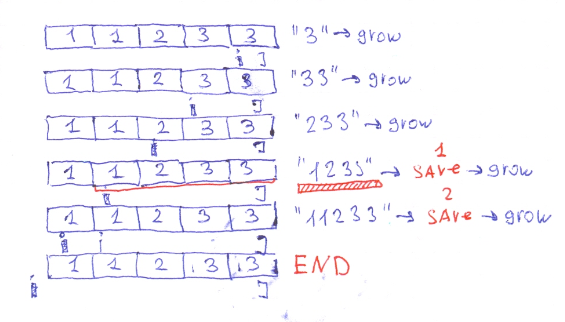 1 1 2 3 3 "3" → grow
i j
1 1 2 3 3 "33" → grow
i j
1 1 2 3 3 "233" → grow
i j
1
1 1 2 3 3 "1233" → SAve → grow
i j
2
1 1 2 3 3 "11233" → SAve → grow
i i j
1 1 2 3 3 END
i j